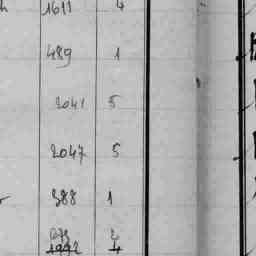 1611 4
489 1
2041 5
2047 5
388 1
2
1992 4